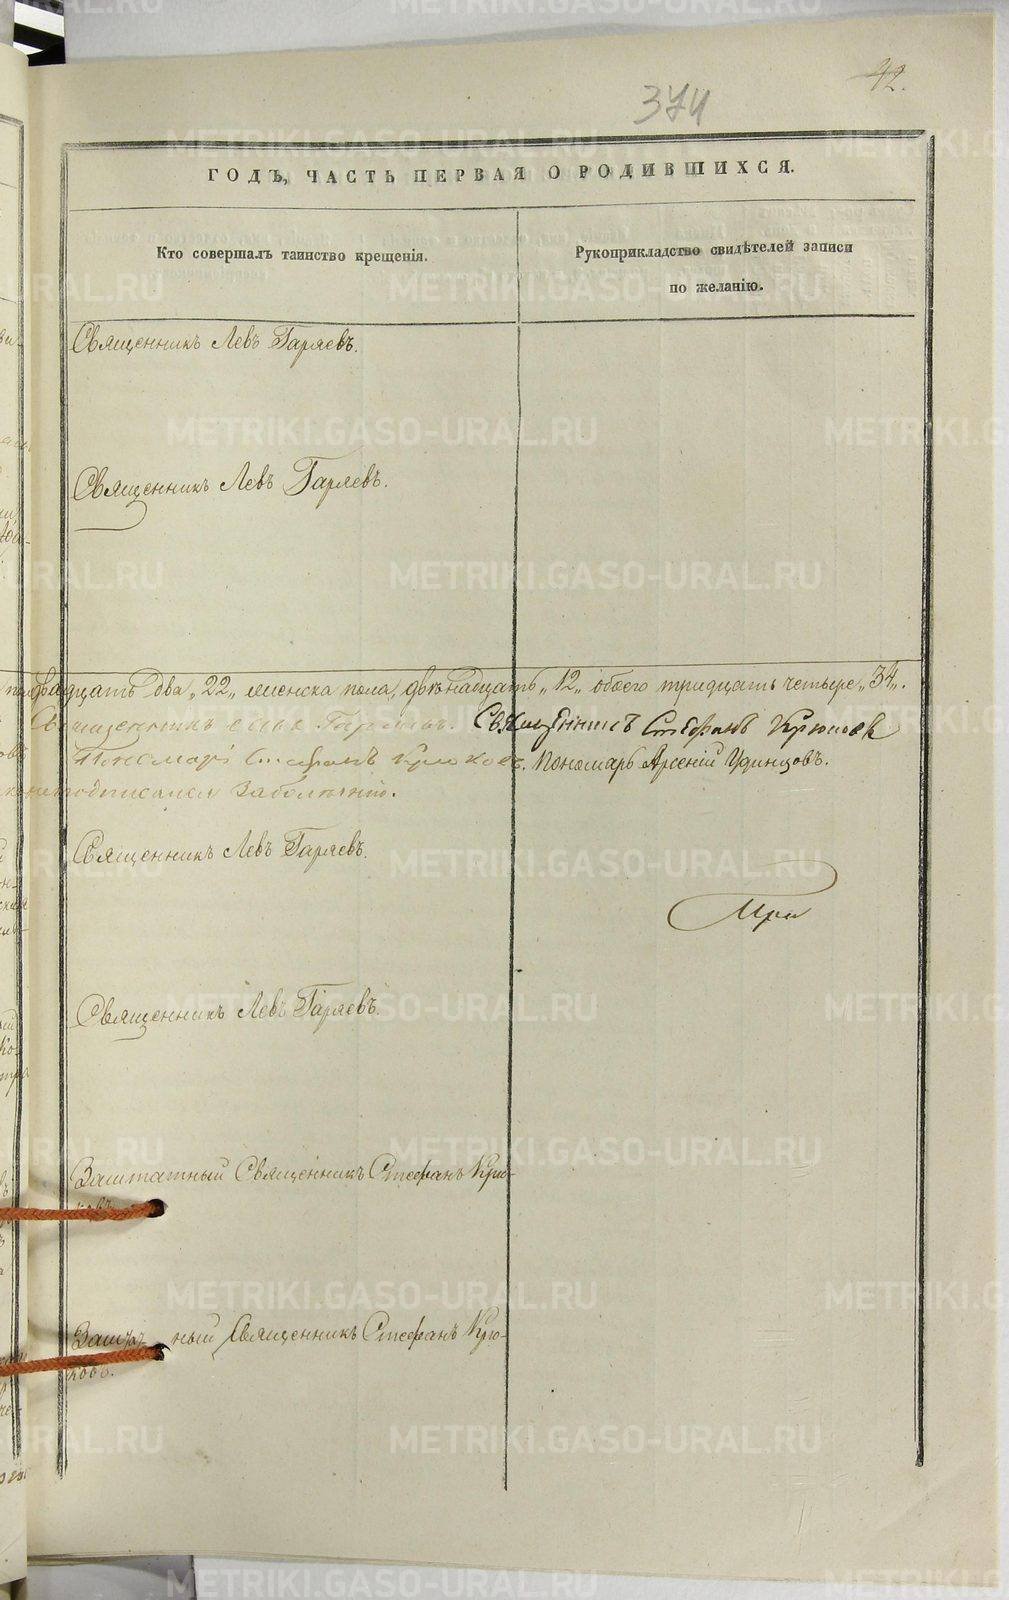 42.
374
ГОДЪ, ЧАСТЬ ПЕРВАЯ О РОДИВШИХСЯ.
Кто совершалъ таинство крещенія.
Рукоприкладство свидѣтелей записи
по желанію.
Священникъ Левъ Гаряевъ.
Священникъ Левъ Гаряевъ.
двадцать два „22„ женска пола, двѣнадцать „12„ обоего тридцать четыре „34„.
Священникъ Левъ Гаряевъ. Священникъ Стефанъ Крюковъ
Пономарь Стефанъ Крюковъ. Пономарь Арсеній Удинцовъ.
неподписался Заболѣнію.
Священникъ Левъ Гаряевъ.
Священникъ Левъ Гаряевъ.
Заштатный Священникъ Стефанъ Крю-
ковъ.
Заштатный Священникъ Стефанъ Крю-
ковъ.
METRIKI.GASO-URAL.RU